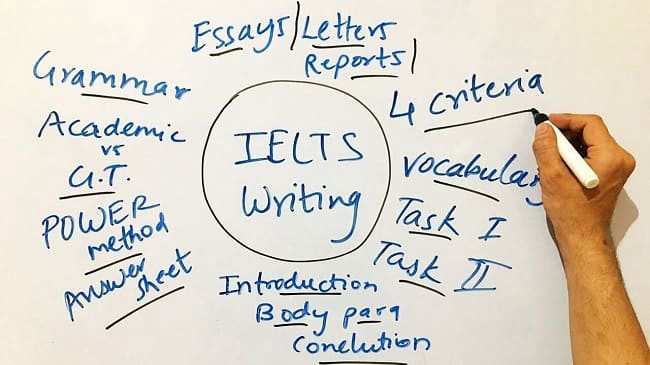 Essays | Letters
Reports |
Grammar
Academic
vs
G.T.
POWER
method
Answer
sheet
IELTS
Writing
4 criteria
vocabulary
Task I
Task II
Introduction
Body para
Conclution